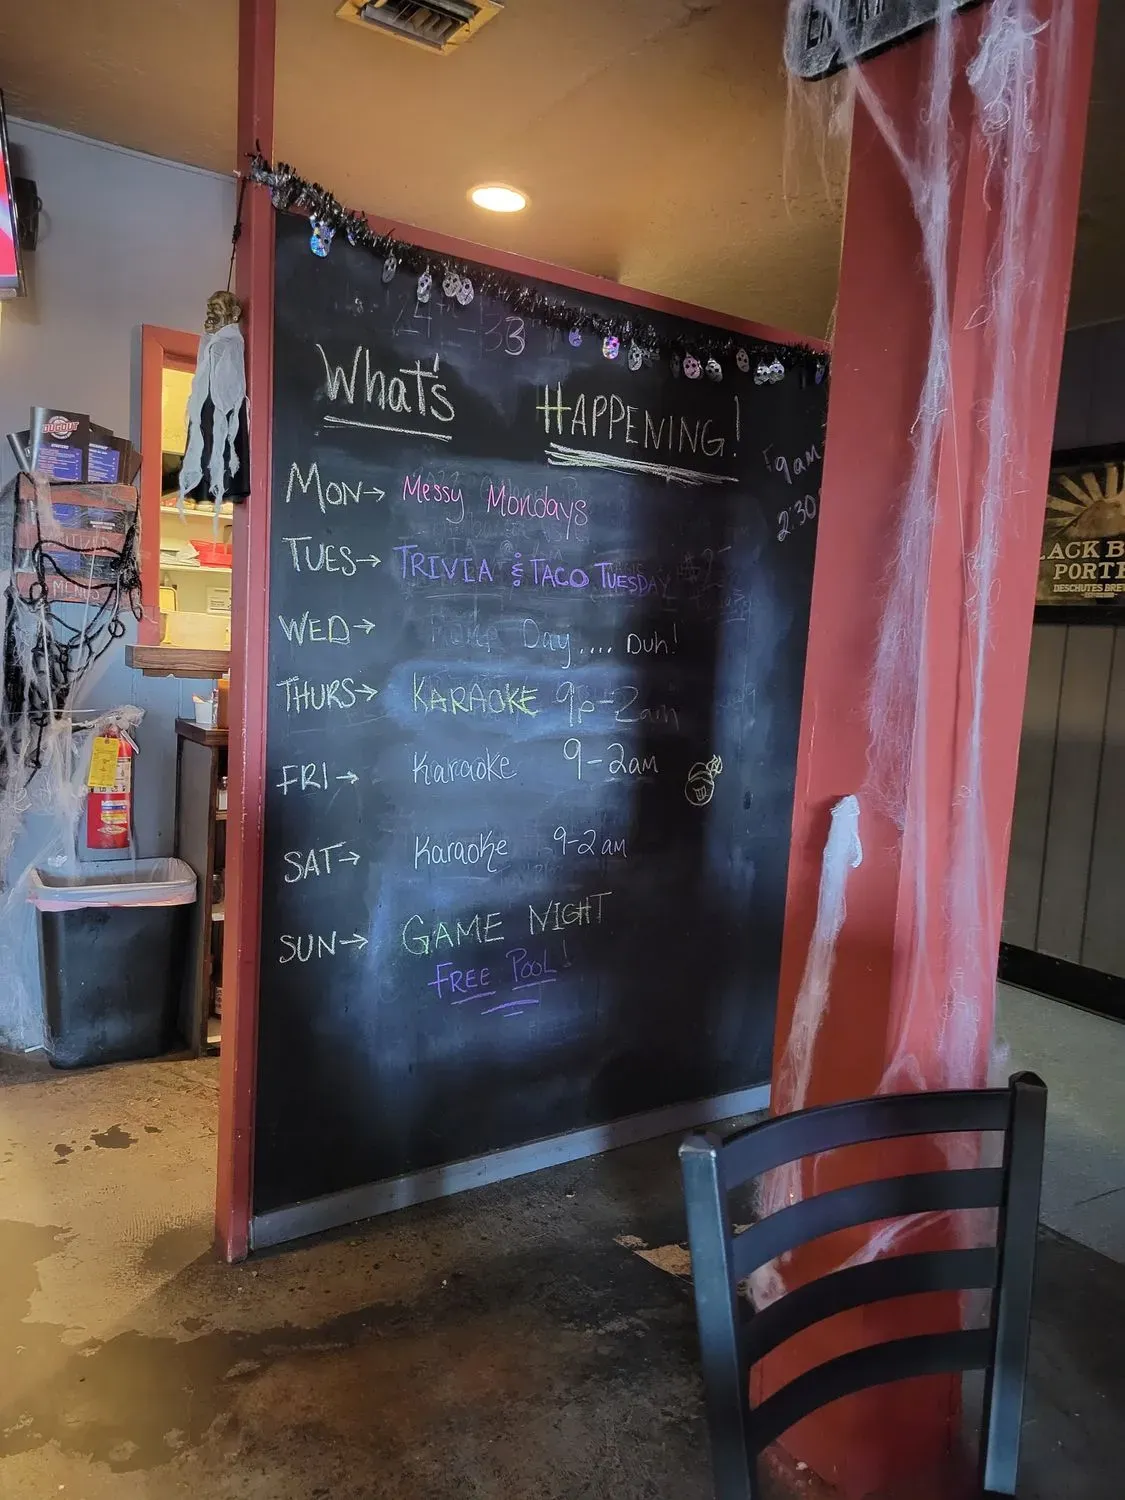 What's HAPPENING!
MON→ Messy Mondays
TUES→ TRIVIA & TACO TUESDAY
WED→ Day.... DUH!
THURS→ KARAOKE 9p-2am
FRI→ Karaoke 9-2am
SAT→ Karaoke 9-2am
SUN→ GAME NIGHT
FREE POOL!
9am
2:30
DUGOUT
MENUS
LACK B
PORTE
DESCHUTES BRE